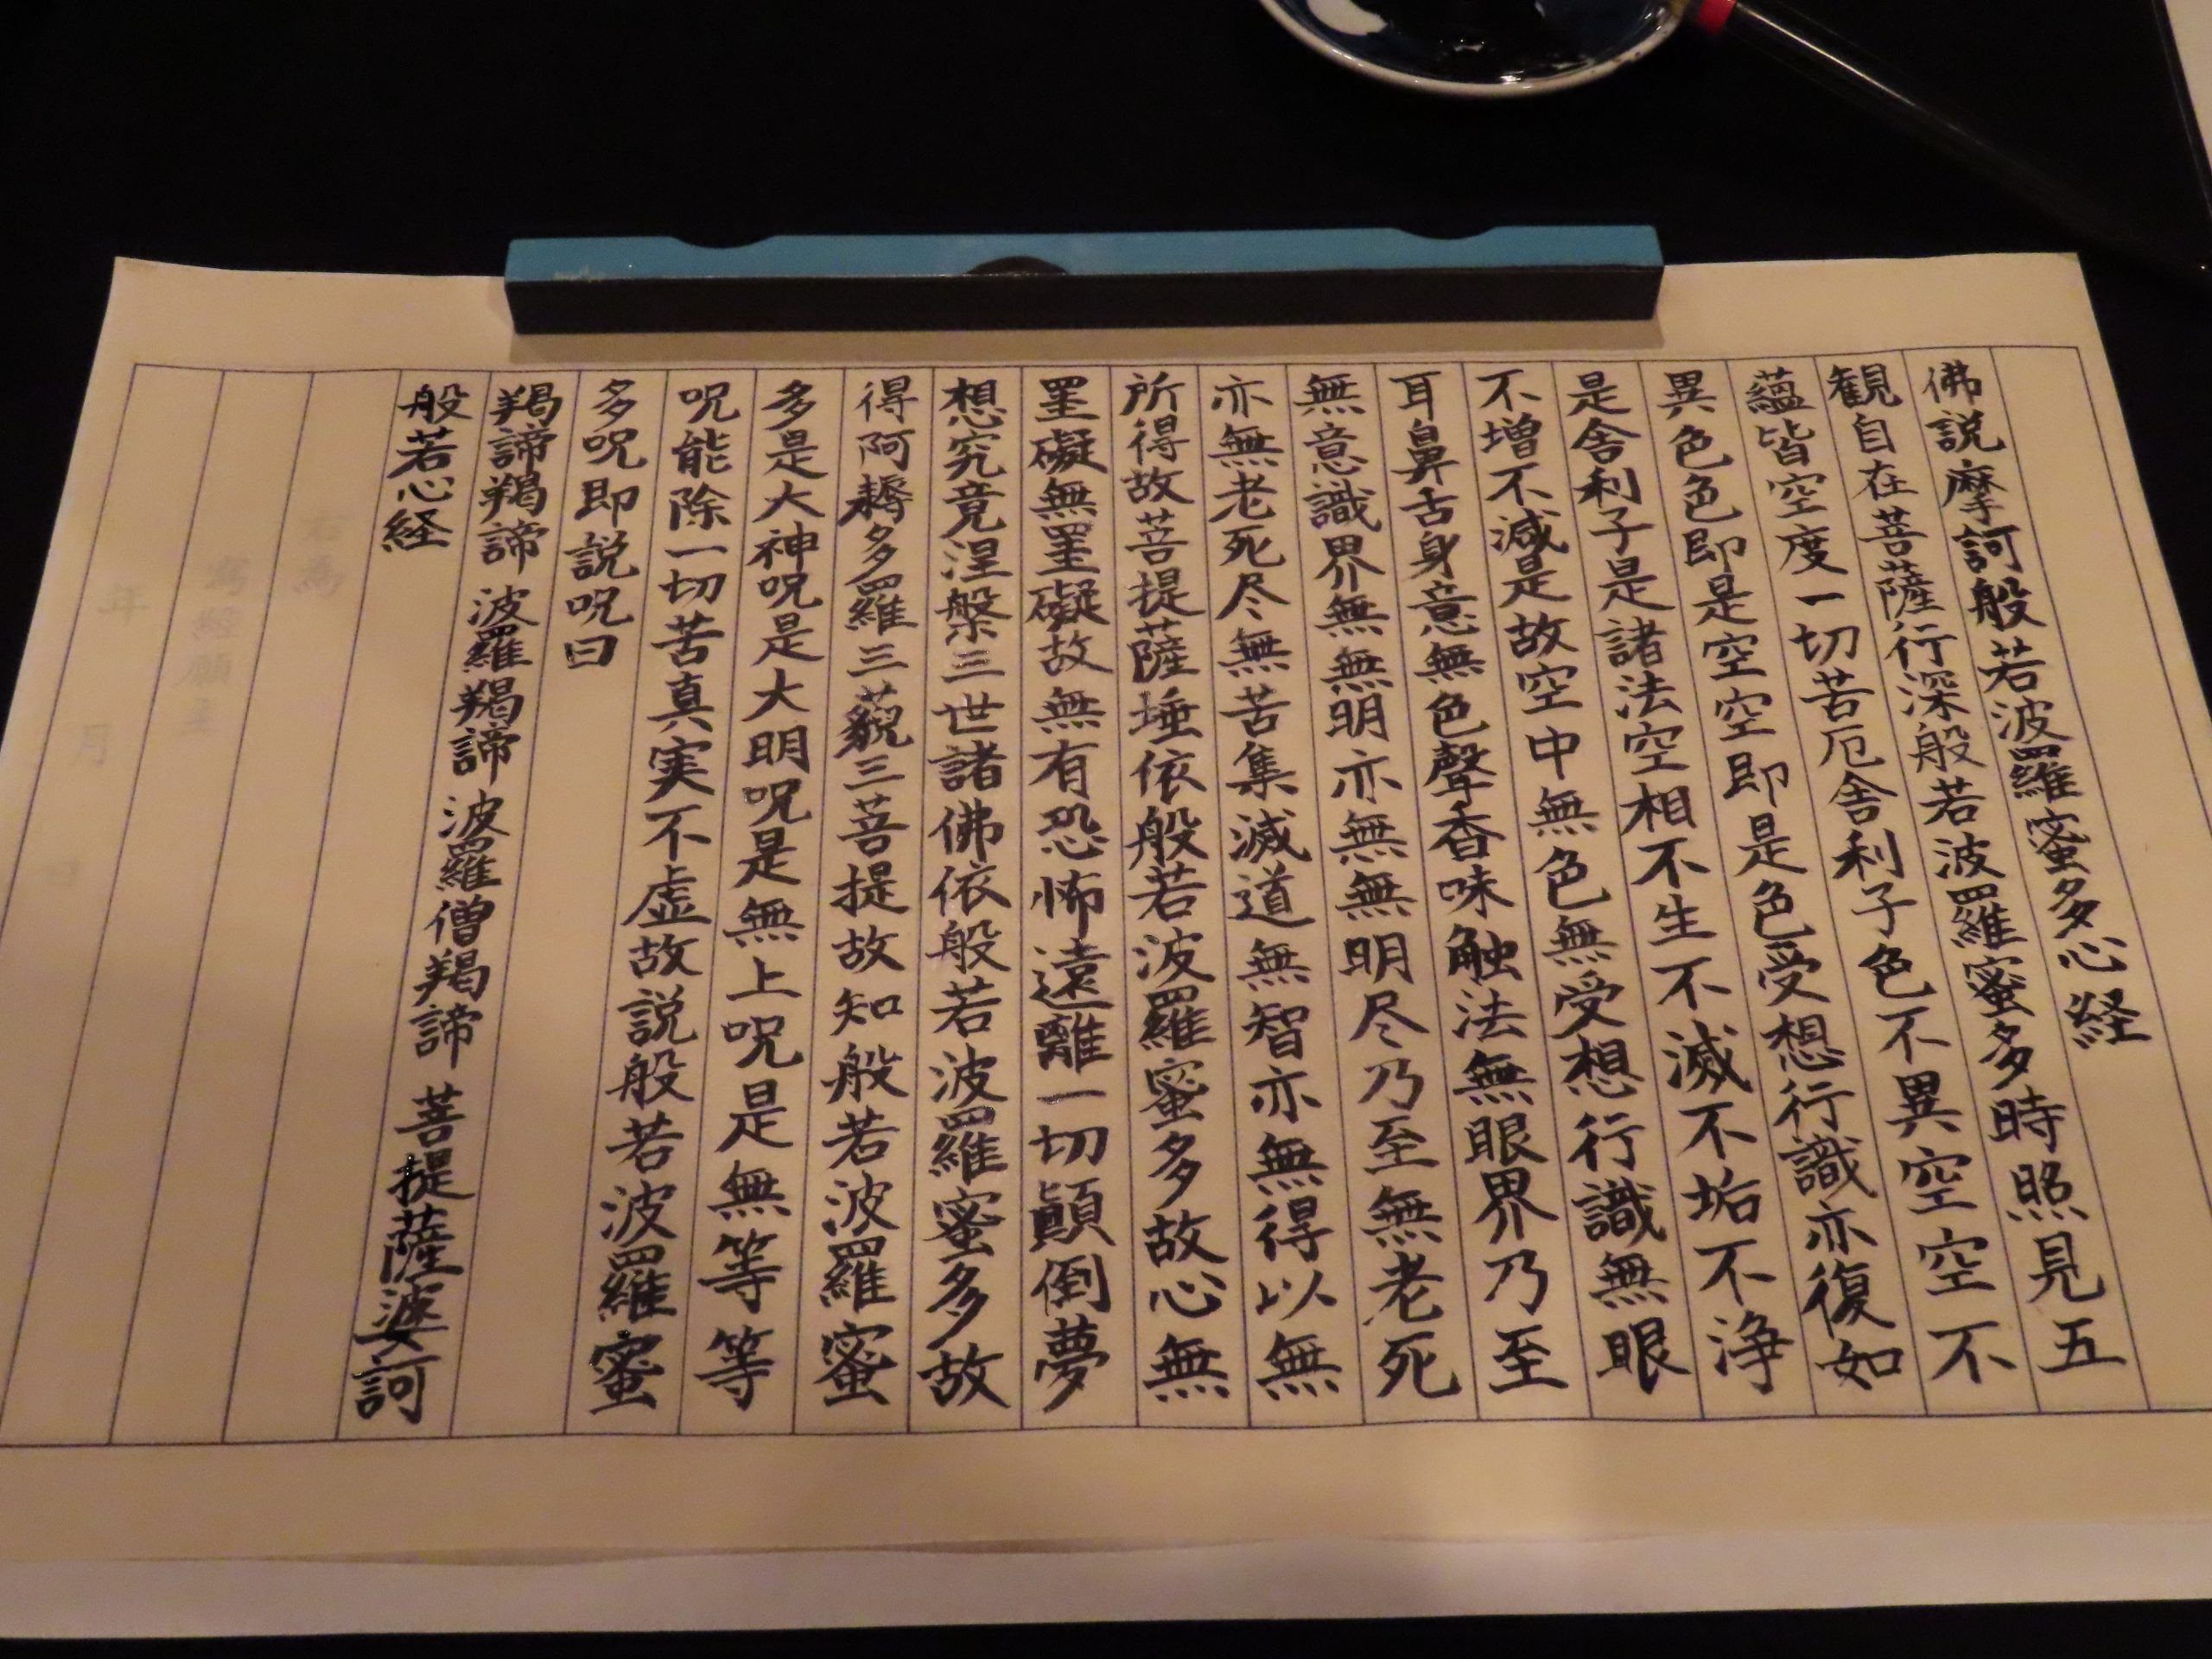 佛説摩訶般若波羅蜜多心経
観自在菩薩行深般若波羅蜜多時照見五
蘊皆空度一切苦厄舎利子色不異空空不
異色色即是空空即是色受想行識亦復如
是舎利子是諸法空相不生不滅不垢不浄
不増不減是故空中無色無受想行識無眼
耳鼻舌身意無色聲香味触法無眼界乃至
無意識界無無明亦無無明尽乃至無老死
亦無老死尽無苦集滅道無智亦無得以無
所得故菩提薩埵依般若波羅蜜多故心無
罣礙無罣礙故無有恐怖遠離一切顛倒夢
想究竟涅槃三世諸佛依般若波羅蜜多故
得阿耨多羅三藐三菩提故知般若波羅蜜
多是大神呪是大明呪是無上呪是無等等
呪能除一切苦真実不虚故説般若波羅蜜
多呪即説呪曰
羯諦羯諦 波羅羯諦 波羅僧羯諦 菩提薩婆訶
般若心経
右為
寫經願主
年 月 日